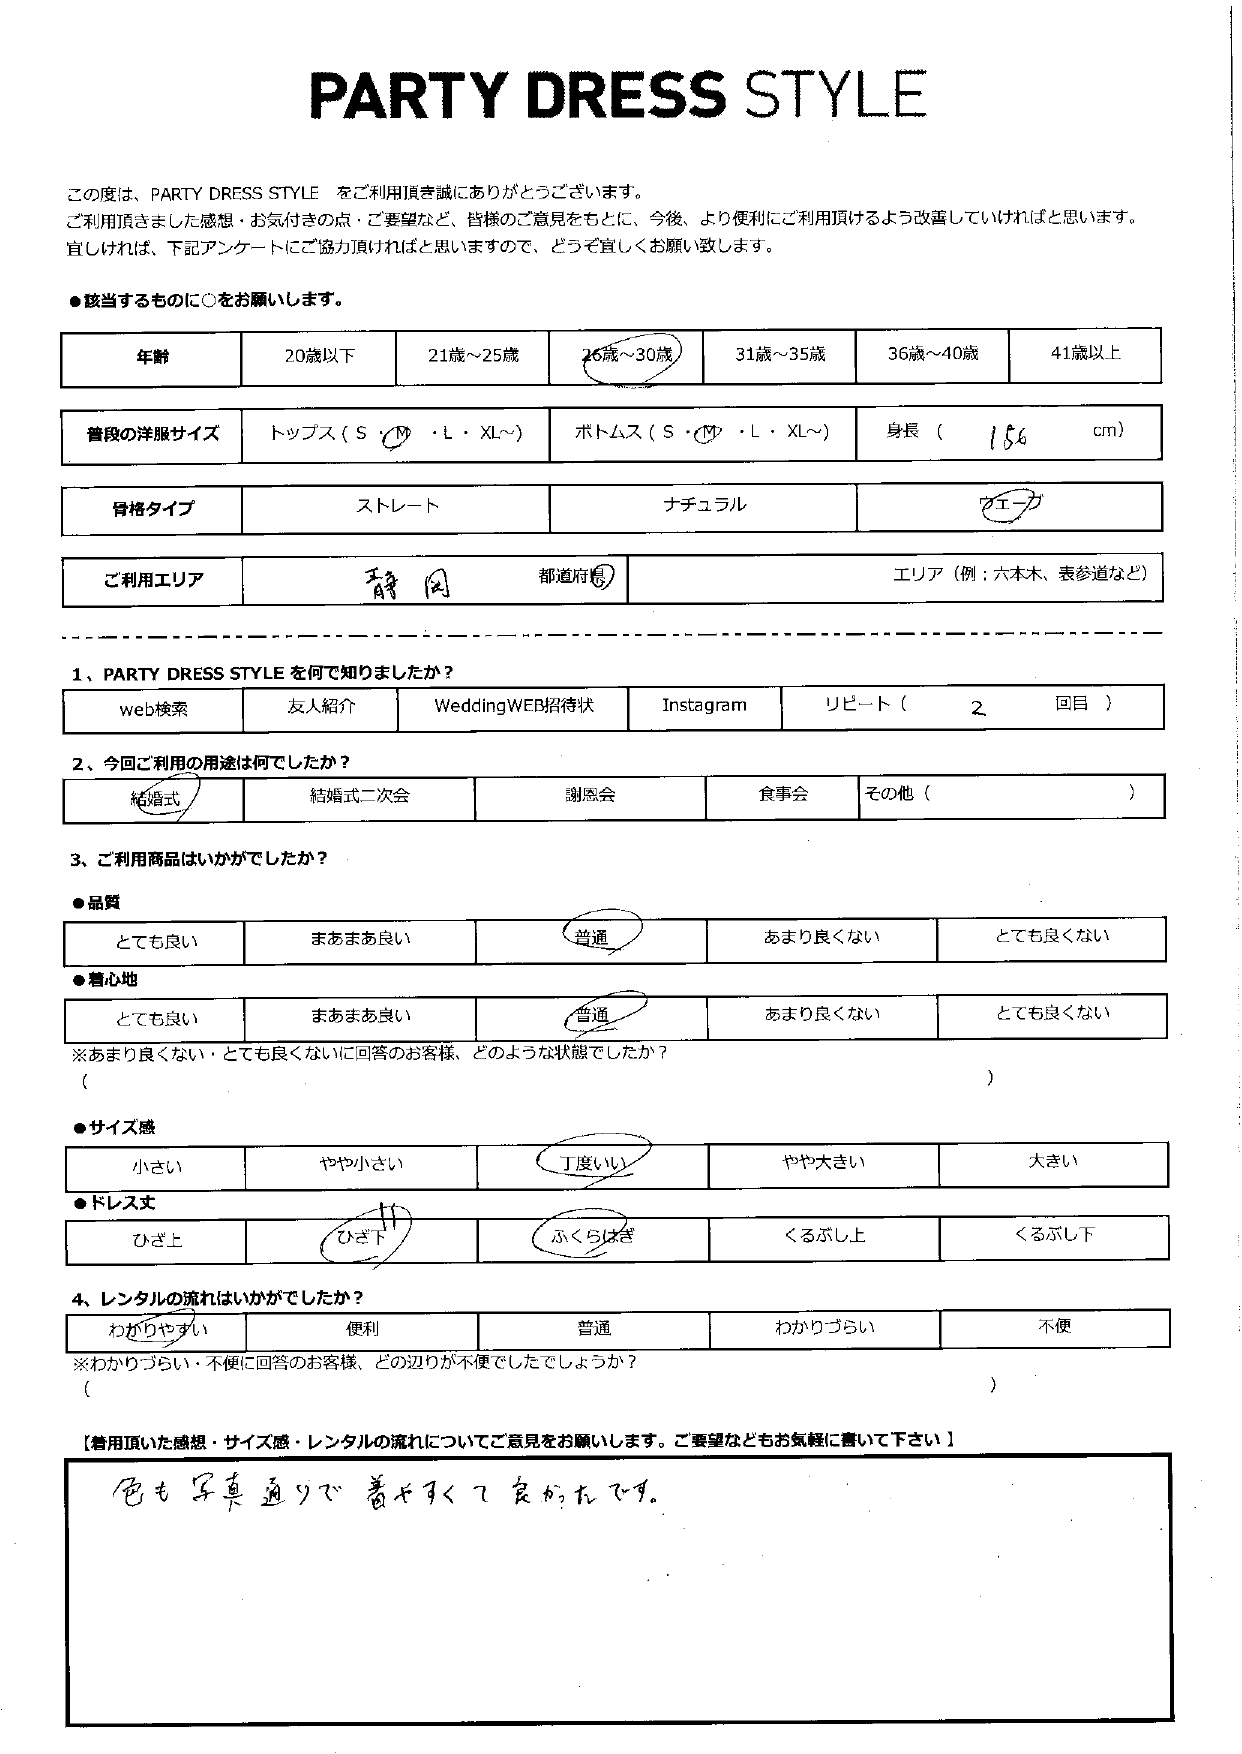 PARTY DRESS STYLE
この度は、PARTY DRESS STYLE をご利用頂き誠にありがとうございます。
ご利用頂きました感想・お気付きの点・ご要望など、皆様のご意見をもとに、今後、より便利にご利用頂けるよう改善していければと思います。
宜しければ、下記アンケートにご協力頂ければと思いますので、どうぞ宜しくお願い致します。
●該当するものに○をお願いします。
年齢 20歳以下 21歳～25歳 26歳～30歳 31歳～35歳 36歳～40歳 41歳以上
普段の洋服サイズ トップス ( S ・M ・L ・ XL～) ボトムス ( S ・M ・L ・ XL～) 身長 ( 156 cm)
骨格タイプ ストレート ナチュラル ウェーブ
ご利用エリア 静岡 都道府県 エリア（例；六本木、表参道など）
1、PARTY DRESS STYLE を何で知りましたか？
web検索 友人紹介 WeddingWEB招待状 Instagram リピート（ 2 回目 ）
2、今回ご利用の用途は何でしたか？
結婚式 結婚式二次会 謝恩会 食事会 その他（ ）
3、ご利用商品はいかがでしたか？
●品質
とても良い まあまあ良い 普通 あまり良くない とても良くない
●着心地
とても良い まあまあ良い 普通 あまり良くない とても良くない
※あまり良くない・とても良くないに回答のお客様、どのような状態でしたか？
（ ）
●サイズ感
小さい やや小さい 丁度いい やや大きい 大きい
●ドレス丈
ひざ上 ひざ下 ふくらはぎ くるぶし上 くるぶし下
4、レンタルの流れはいかがでしたか？
わかりやすい 便利 普通 わかりづらい 不便
※わかりづらい・不便に回答のお客様、どの辺りが不便でしたでしょうか？
（ ）
【着用頂いた感想・サイズ感・レンタルの流れについてご意見をお願いします。ご要望などもお気軽に書いて下さい 】
色も写真通りで着やすくて良かったです。